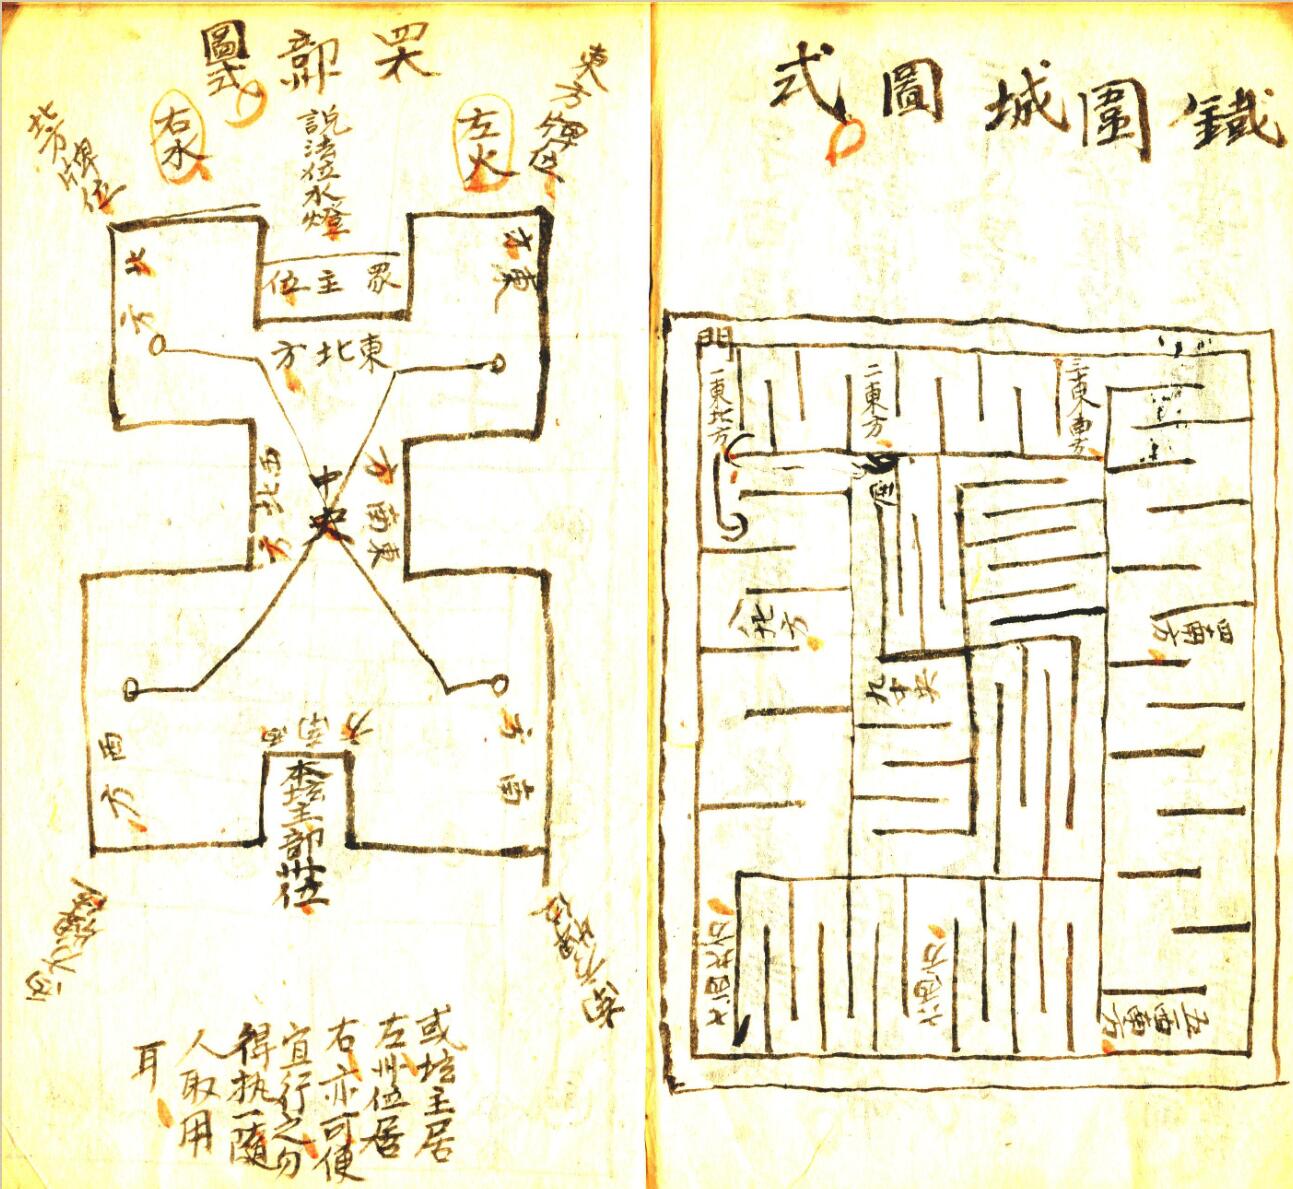 鐵圍城圖式
門
一東北方
二東方
三東南方
四南方
五西南方
六西方
七西北方
八北方
九中央
罡部圖式
左火
說法位水燈
右水
東方牌位
北方牌位
眾主位
東方
北方
東北方
中央
東南方
西北方
南方
西方
西南方
本坛主部位
南方牌位
西方牌位
或坛主居
左卅位居
右亦可便
宜行之勿
得执一隨
人取用
耳